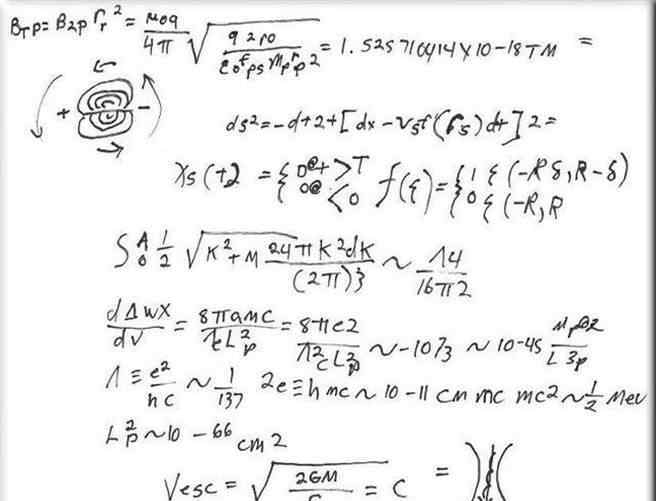 BTP = B2p rr 2 = μ0q / 4π √ q 2 r0 / ε0 f ps Mp rp 2 = 1.525710414 X 10-18 TM =
+ -
ds2 = -d+2+[dx - vsf (rs) dt] 2 =
Xs (+2 = { 0@+ > T 0@ < 0 f(ξ) = { 1 ξ (-R δ, R - δ) 0 ξ (-R, R
S A 0 1/2 √ K2 + M 24π K2dK / (2π)3 ~ Λ4 / 16π2
dΔwx / dv = 8πamc / ƛeL2p = 8πe2 / ƛ2cL2p ~ -1073 ~ 10-45 Mp02 / L 3p
Λ ≡ e2 / hc ~ 1 / 137 2e ≡ h mc ~ 10 - 11 cm mc mc2 ~ 1/2 Mev
L 2 p ~ 10 - 66 cm2
Vesc = √ 2GM / r = C =